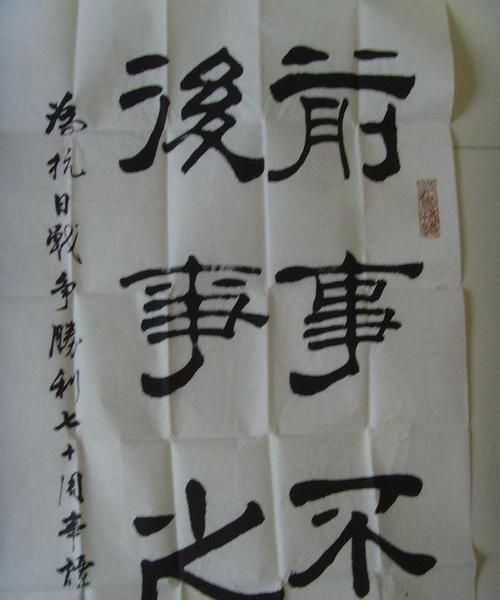 前事不
後事之
為抗日戰争勝利七十周年